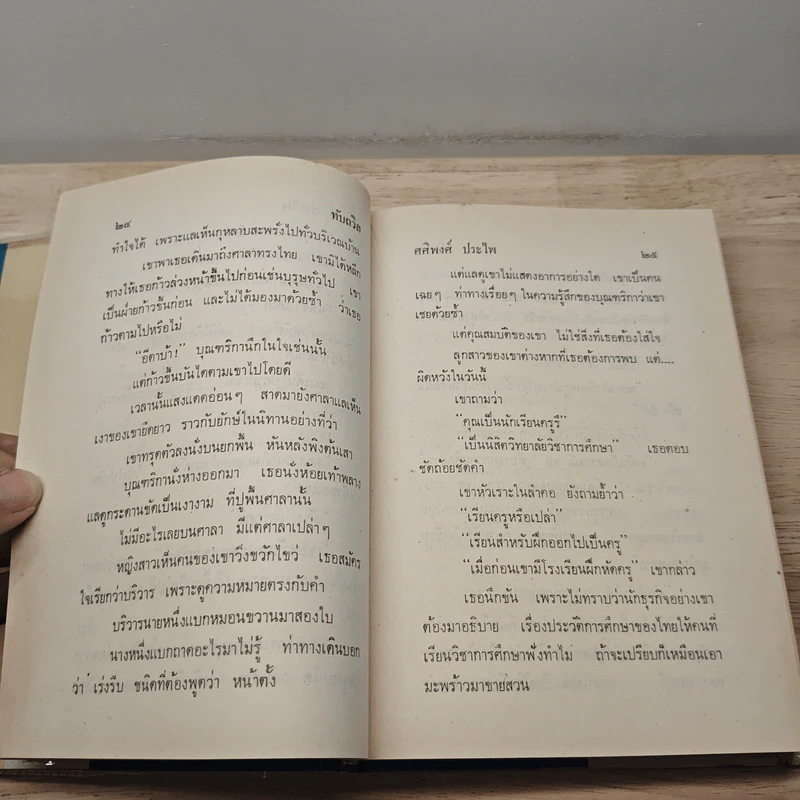 ๒๔ ทับถวิล
ทำใจได้ เพราะแลเห็นกุหลาบสะพรั่งไปทั่วบริเวณบ้าน
เขาพาเธอเดินมาถึงศาลาทรงไทย เขามิได้หลีก
ทางให้เธอก้าวล่วงหน้าขึ้นไปก่อนเช่นบุรุษทั่วไป เขา
เป็นฝ่ายก้าวขึ้นก่อน และไม่ได้มองมาด้วยซ้ำ ว่าเธอ
ก้าวตามไปหรือไม่
“อีตาบ้า!” บุณฑริกานึกในใจเช่นนั้น
แต่ก้าวขึ้นบันไดตามเขาไปโดยดี
เวลานั้นแสงแดดอ่อนๆ สาดมายังศาลาแลเห็น
เงาของเขายืดยาว ราวกับยักษ์ในนิทานอย่างที่ว่า
เขาทรุดตัวลงนั่งบนยกพื้น หันหลังพิงต้นเสา
บุณฑริกานั่งห่างออกมา เธอนั่งห้อยเท้าพลาง
แลดูกระดานขัดเป็นเงางาม ที่ปูพื้นศาลานั้น
ไม่มีอะไรเลยบนศาลา มีแต่ศาลาเปล่าๆ
หญิงสาวเห็นคนของเขาวิ่งขวักไขว่ เธอสมัคร
ใจเรียกว่าบริวาร เพราะดูความหมายตรงกับคำ
บริวารนายหนึ่งแบกหมอนขวานมาสองใบ
นางหนึ่งแบกถาดอะไรมาไม่รู้ ท่าทางเดินบอก
ว่า เร่งรีบ ชนิดที่ต้องพูดว่า หน้าตั้ง
ศศิพงศ์ ประไพ ๒๕
แต่แลดูเขาไม่แสดงอาการอย่างใด เขาเป็นคน
เฉยๆ ท่าทางเรื่อยๆ ในความรู้สึกของบุณฑริกาว่าเขา
เชยด้วยซ้ำ
แต่คุณสมบัติของเขา ไม่ใช่สิ่งที่เธอต้องใส่ใจ
ลูกสาวของเขาต่างหากที่เธอต้องการพบ แต่....
ผิดหวังในวันนี้
เขาถามว่า
“คุณเป็นนักเรียนครูรึ”
“เป็นนิสิตวิทยาลัยวิชาการศึกษา” เธอตอบ
ชัดถ้อยชัดคำ
เขาหัวเราะในลำคอ ยังถามย้ำว่า
“เรียนครูหรือเปล่า”
“เรียนสำหรับฝึกออกไปเป็นครู”
“เมื่อก่อนเขามีโรงเรียนฝึกหัดครู” เขากล่าว
เธอนึกขัน เพราะไม่ทราบว่านักธุรกิจอย่างเขา
ต้องมาอธิบาย เรื่องประวัติการศึกษาของไทยให้คนที่
เรียนวิชาการศึกษาฟังทำไม ถ้าจะเปรียบก็เหมือนเอา
มะพร้าวมาขายสวน